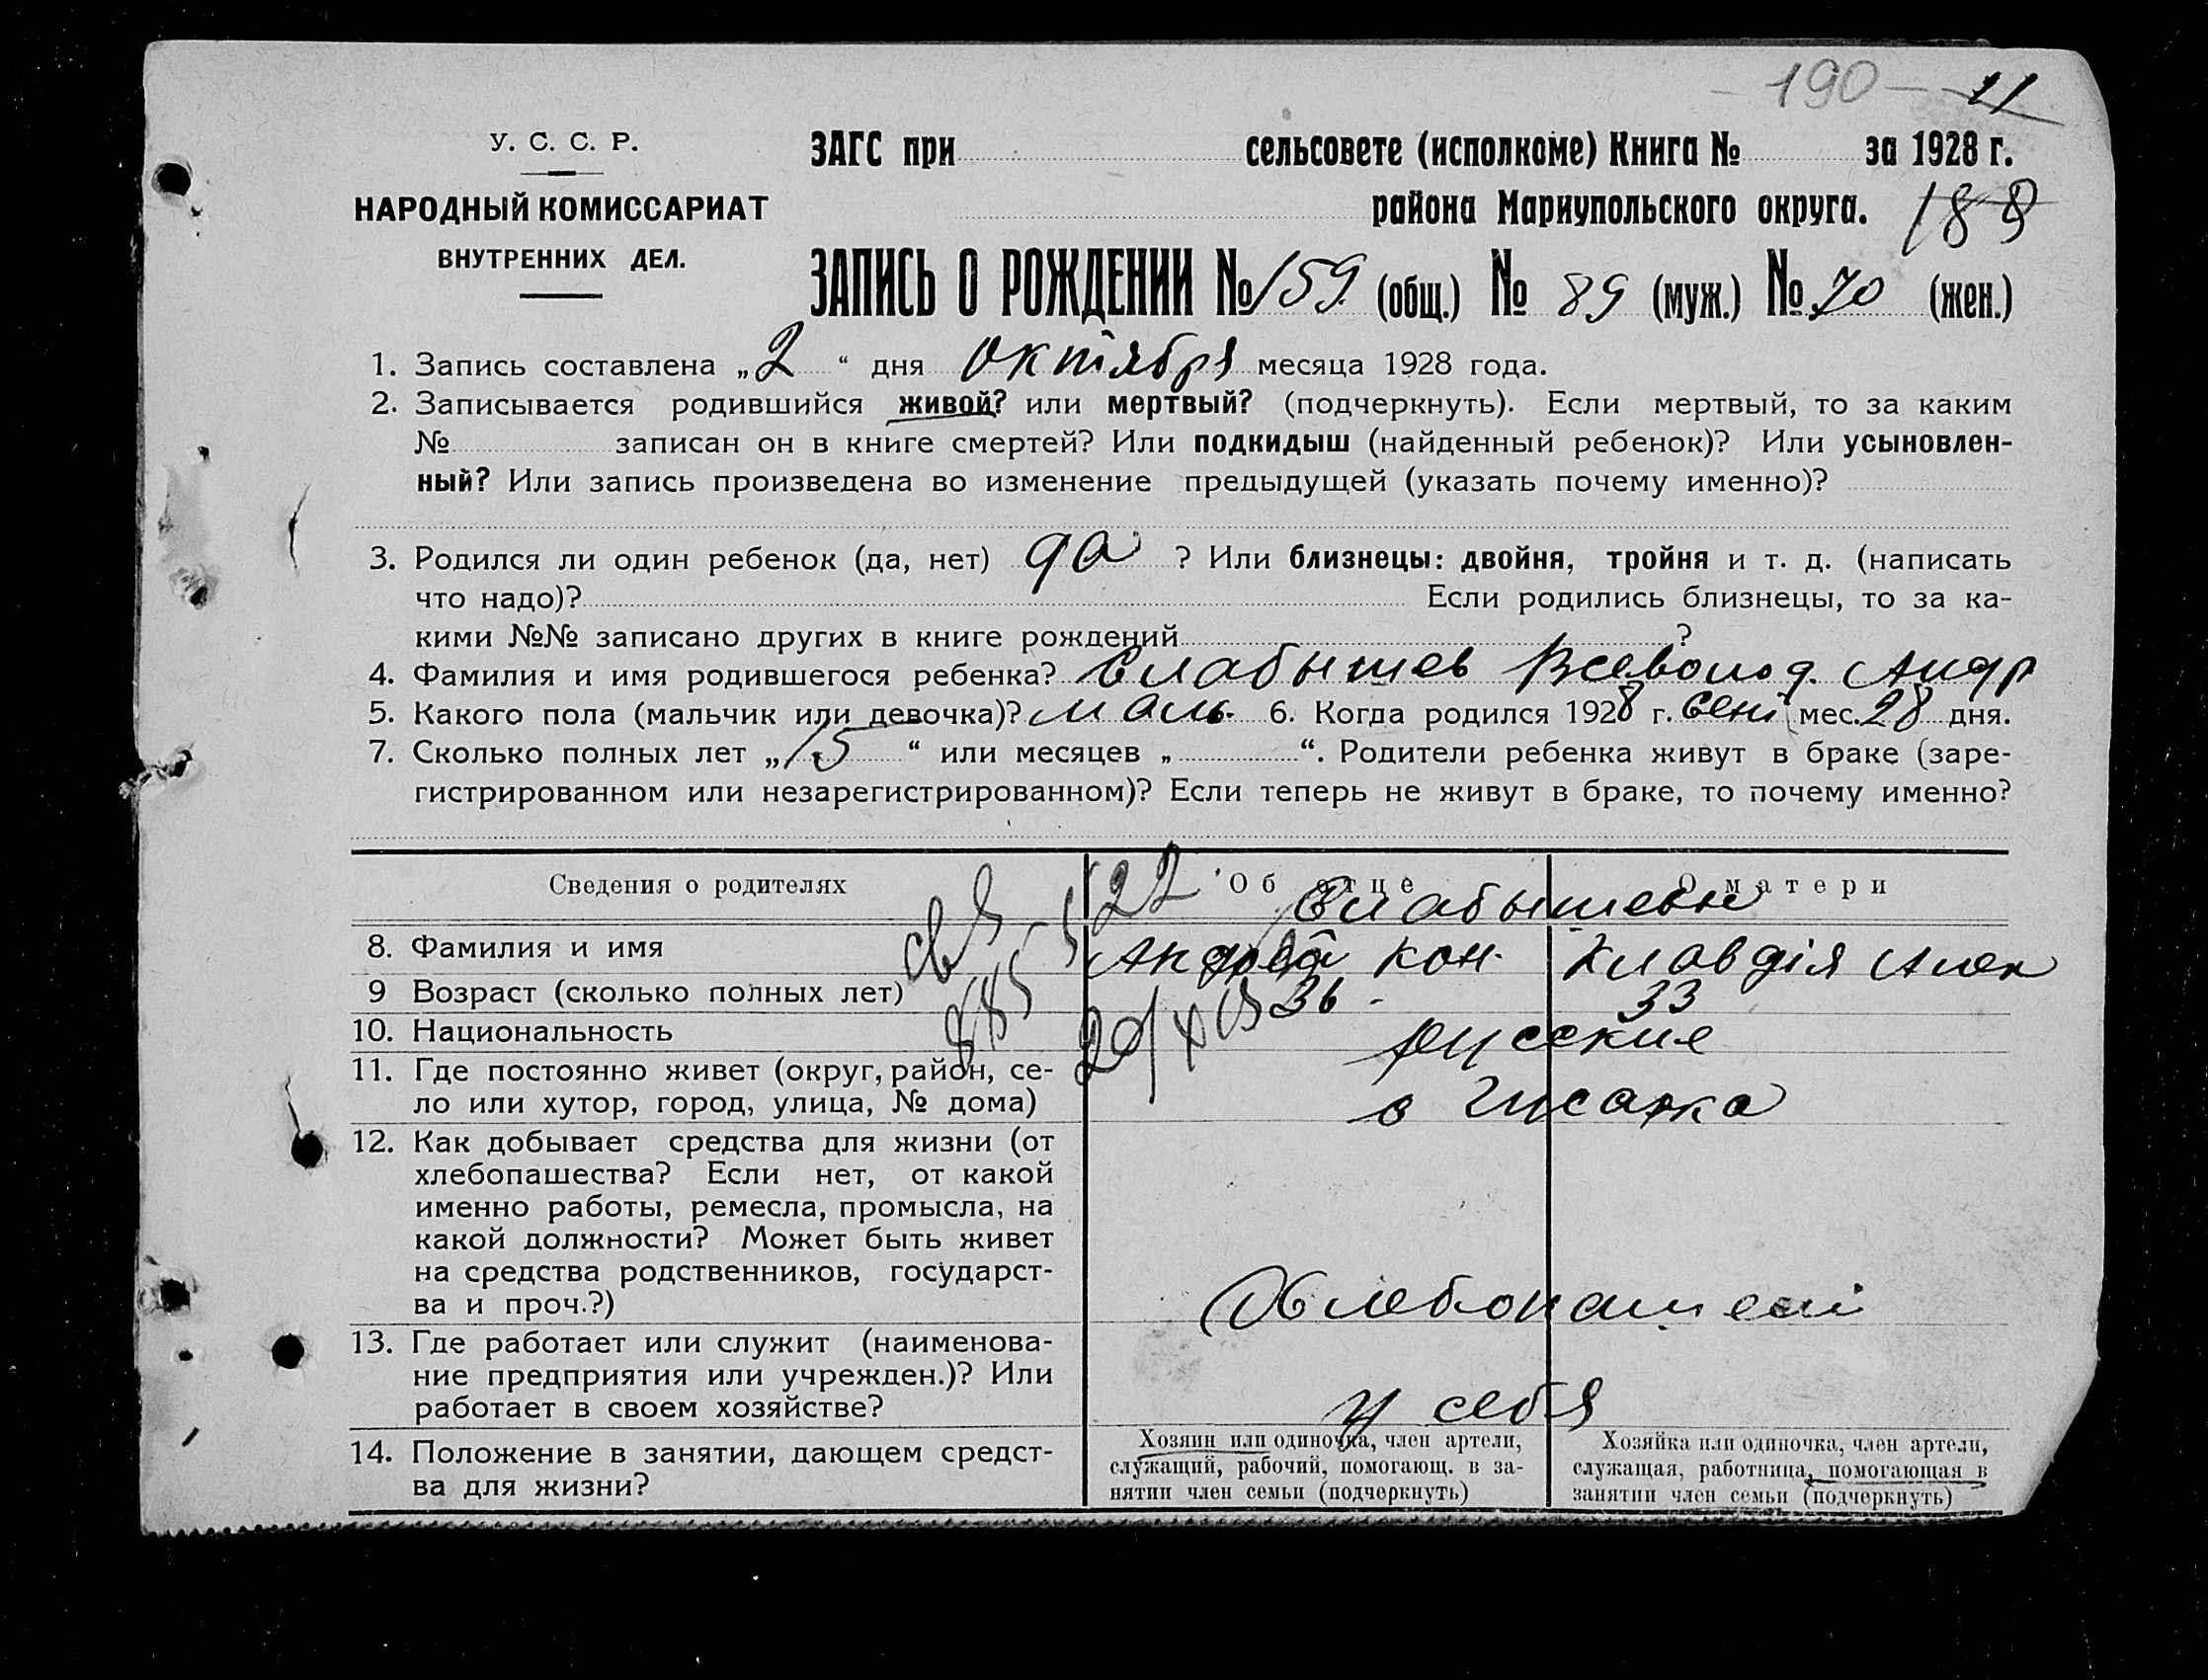 190 — 11
У. С. С. Р.
НАРОДНЫЙ КОМИССАРИАТ
ВНУТРЕННИХ ДЕЛ.
ЗАГС при сельсовете (исполкоме) Книга № за 1928 г.
района Мариупольского округа. 188
ЗАПИСЬ О РОЖДЕНИИ № 159 (общ.) № 89 (муж.) № 70 (жен.)
1. Запись составлена „2“ дня октября месяца 1928 года.
2. Записывается родившийся живой? или мертвый? (подчеркнуть). Если мертвый, то за каким
№ записан он в книге смертей? Или подкидыш (найденный ребенок)? Или усыновлен-
ный? Или запись произведена во изменение предыдущей (указать почему именно)?
3. Родился ли один ребенок (да, нет) да ? Или близнецы: двойня, тройня и т. д. (написать
что надо)? Если родились близнецы, то за ка-
кими №№ записано других в книге рождений ?
4. Фамилия и имя родившегося ребенка? Слабышев Всеволод. Андр
5. Какого пола (мальчик или девочка)? маль. 6. Когда родился 1928 г. Сент мес. 28 дня.
7. Сколько полных лет „15“ или месяцев „ “. Родители ребенка живут в браке (заре-
гистрированном или незарегистрированном)? Если теперь не живут в браке, то почему именно?
Сведения о родителях
Об отце
О матери
Слабышевы
8. Фамилия и имя
Андрей Кон.
Клавдія Алек
9 Возраст (сколько полных лет)
36
33
10. Национальность
русские
11. Где постоянно живет (округ, район, се-
ло или хутор, город, улица, № дома)
12. Как добывает средства для жизни (от
хлебопашества? Если нет, от какой
именно работы, ремесла, промысла, на
какой должности? Может быть живет
на средства родственников, государст-
ва и проч.?)
Хлебопашест
13. Где работает или служит (наименова-
ние предприятия или учрежден.)? Или
работает в своем хозяйстве?
у себя
14. Положение в занятии, дающем средст-
ва для жизни?
Хозяин или одиночка, член артели,
служащий, рабочий, помогающ. в за-
нятии член семьи (подчеркнуть)
Хозяйка или одиночка, член артели,
служащая, работница, помогающая в
занятии член семьи (подчеркнуть)